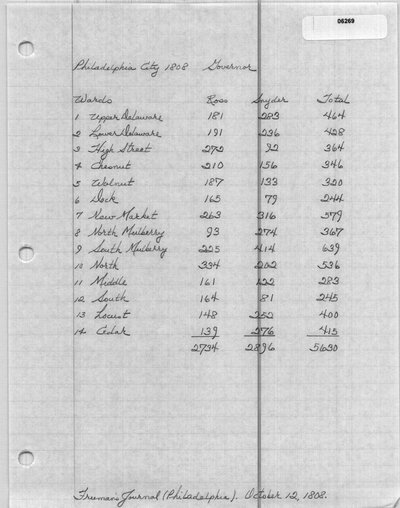 06269
Philadelphia City 1808 Governor
Wards Ross Snyder Total
1 Upper Delaware 181 283 464
2 Lower Delaware 191 236 428
3 High Street 272 92 364
4 Chesnut 210 156 346
5 Walnut 187 133 320
6 Dock 165 79 244
7 New Market 263 316 579
8 North Mulberry 93 274 367
9 South Mulberry 225 414 639
10 North 334 202 536
11 Middle 161 122 283
12 South 164 81 245
13 Locust 148 252 400
14 Cedar 139 276 415
2734 2896 5630
Freeman's Journal (Philadelphia). October 12, 1808.